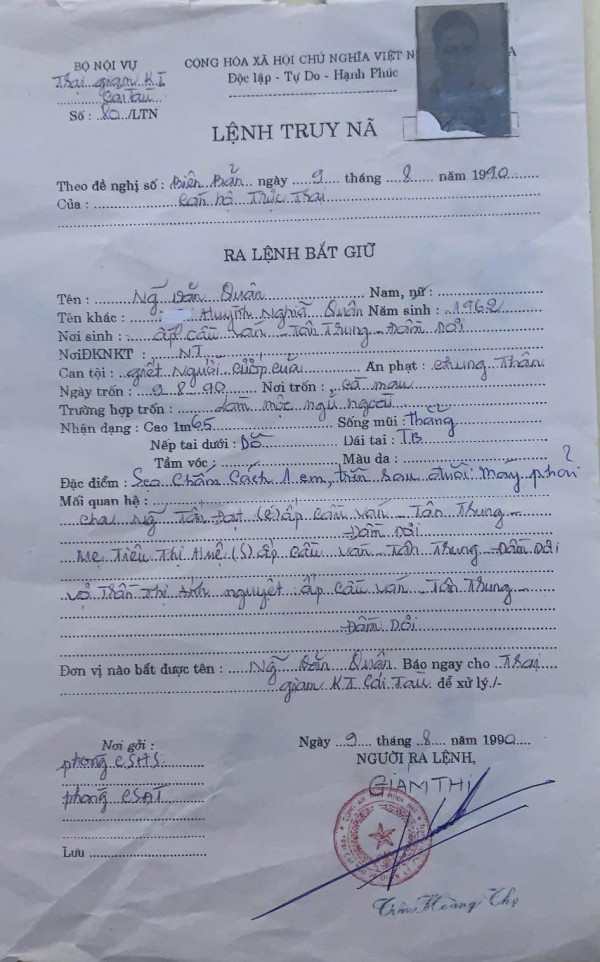 BỘ NỘI VỤ
CỘNG HÒA XÃ HỘI CHỦ NGHĨA VIỆT N A
Trại giam K1
Độc lập - Tự Do - Hạnh Phúc
Cái Tàu
Số : 80 /LTN
LỆNH TRUY NÃ
Theo đề nghị số : Biên Bản ngày 9 tháng 8 năm 1990
Của : Cán bộ Trực Trại
RA LỆNH BẮT GIỮ
Tên : Ng~ Văn Quân Nam, nữ :
Tên khác : Huỳnh Nghĩa Quân Năm sinh : 1962
Nơi sinh : ấp cầu ván - Tân Trung - Đầm Dơi
NơiĐKNKT : NT
Can tội : giết Người cướp của Án phạt : chung Thân
Ngày trốn : 9-8-90 Nơi trốn : cà mau
Trường hợp trốn : làm mộc ngủ ngoài
Nhận dạng : Cao 1m 65 Sống mũi : thẳng
Nếp tai dưới : Dái tai : TB
Tầm vóc : Màu da :
Đặc điểm : Sẹo Chấm Cách 1 em, trên sau đuôi mày phải
Mối quan hệ :
cha Ng~ Tấn Đạt (S) ấp cầu ván - Tân Trung -
Đầm Dơi
Mẹ Tiêu Thị Huệ (S) ấp cầu ván - Tân Trung - Đầm Dơi
vợ Trần Thị Ánh nguyệt ấp cầu ván - Tân Trung -
Đầm Dơi
Đơn vị nào bắt được tên : Ng~ Văn Quân Báo ngay cho Trại
giam K1 Cái Tàu để xử lý./-
Ngày 9 tháng 8 năm 1990
Nơi gởi :
NGƯỜI RA LỆNH,
phòng CSHS
GIÁM THỊ
phòng CSĐT
Lưu
Trần Hoàng Thọ